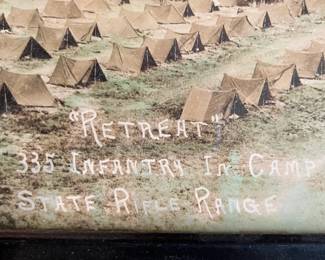 "RETREAT"
335 INFANTRY IN CAMP
STATE RIFLE RANGE